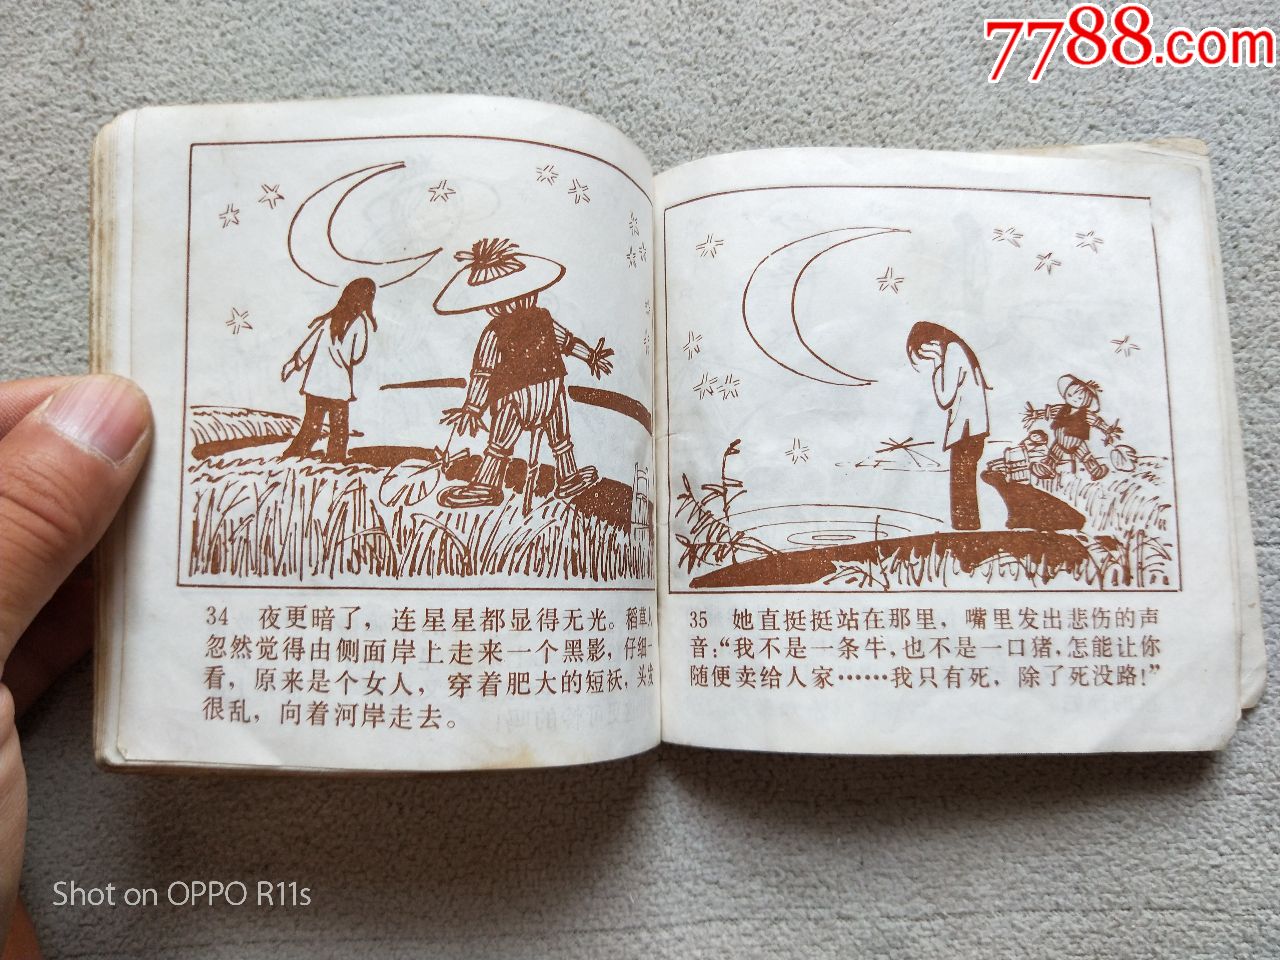 7788.com
34 夜更暗了，连星星都显得无光。稻草人
忽然觉得由侧面岸上走来一个黑影，仔细一
看，原来是个女人，穿着肥大的短袄，头发
很乱，向着河岸走去。
35 她直挺挺站在那里，嘴里发出悲伤的声
音：“我不是一条牛，也不是一口猪，怎能让你
随便卖给人家……我只有死，除了死没路！”
Shot on OPPO R11s